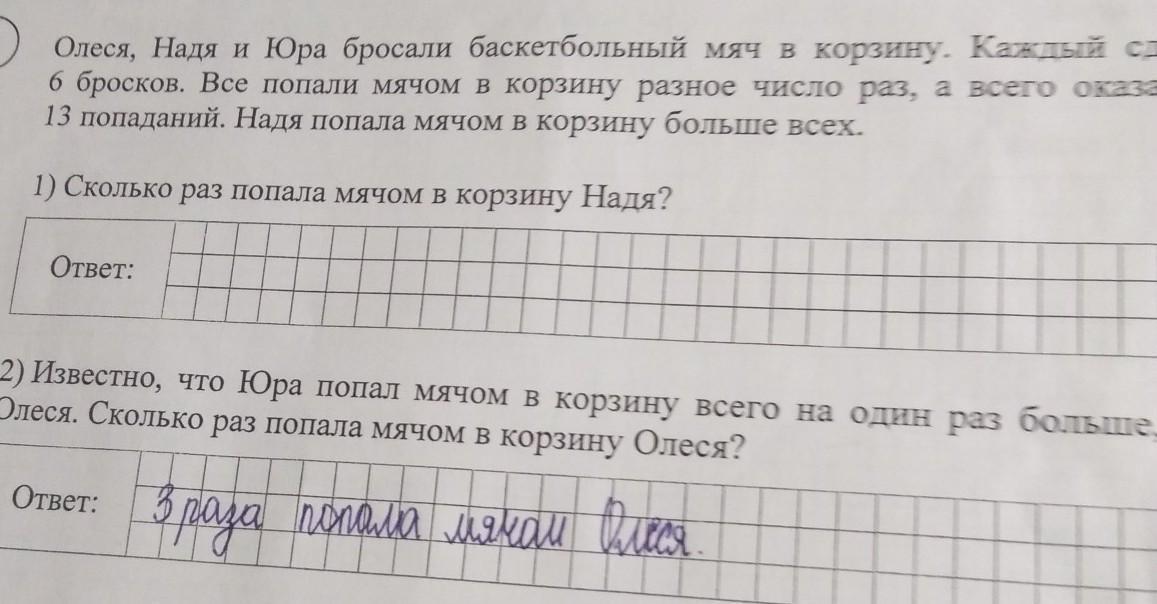 Олеся, Надя и Юра бросали баскетбольный мяч в корзину. Каждый сд
6 бросков. Все попали мячом в корзину разное число раз, а всего оказа
13 попаданий. Надя попала мячом в корзину больше всех.
1) Сколько раз попала мячом в корзину Надя?
Ответ:
2) Известно, что Юра попал мячом в корзину всего на один раз больше,
Олеся. Сколько раз попала мячом в корзину Олеся?
Ответ: 3 раза попала мячом Олеся.